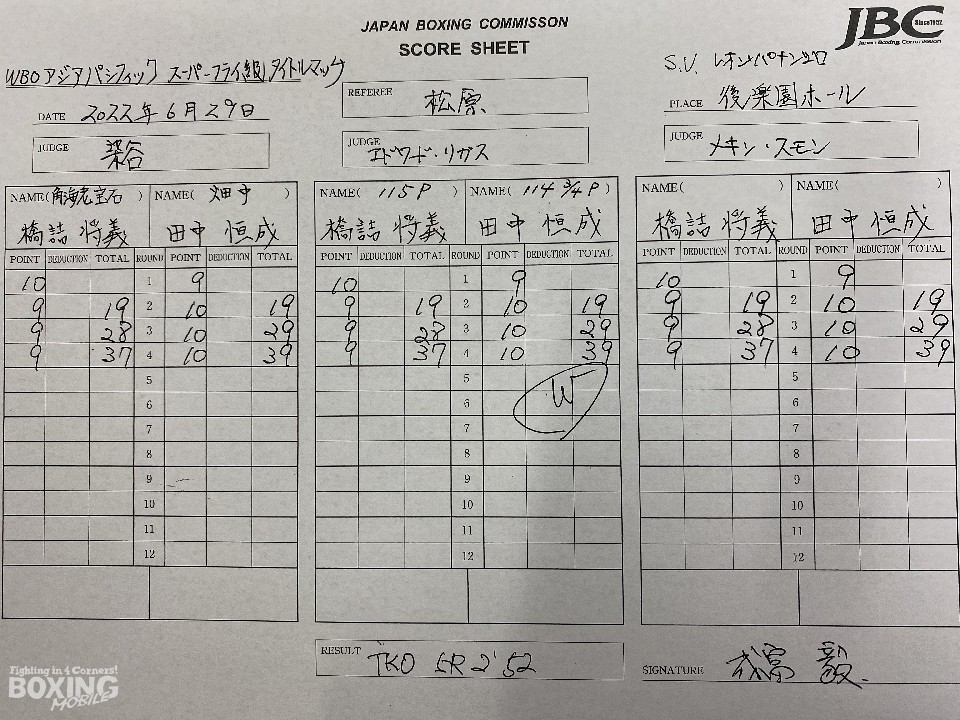 JAPAN BOXING COMMISSON
SCORE SHEET
JBC Since1952
Japan Boxing Commission
WBOアジアパシフィック スーパーフライ級タイトルマッチ
S.V. レオン・パナンシロ
DATE 2022年6月29日
REFEREE 松原
PLACE 後楽園ホール
JUDGE 染谷
JUDGE エドワード・リガス
JUDGE メキン・スモン
NAME(角海老宝石) NAME(畑中) NAME(115P) NAME(114 3/4P) NAME( ) NAME( )
橋詰 将義 田中 恒成 橋詰 将義 田中 恒成 橋詰 将義 田中 恒成
POINT DEDUCTION TOTAL ROUND POINT DEDUCTION TOTAL POINT DEDUCTION TOTAL ROUND POINT DEDUCTION TOTAL POINT DEDUCTION TOTAL ROUND POINT DEDUCTION TOTAL
10 1 9 10 1 9 10 1 9
9 19 2 10 19 9 19 2 10 19 9 19 2 10 19
9 28 3 10 29 9 28 3 10 29 9 28 3 10 29
9 37 4 10 39 9 37 4 10 39 9 37 4 10 39
5 5 5
6 6 W 6
7 7 7
8 8 8
9 9 9
10 10 10
11 11 11
12 12 12
RESULT TKO 5R 2'52
SIGNATURE 成富 毅
Fighting in 4 Corners!
BOXING
MOBILE